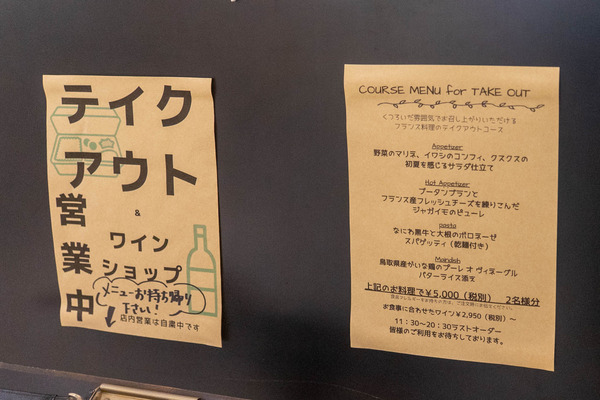 テイク
アウト
&
ワイン
ショップ
営業中
メニューお持ち帰り
下さい!
店内営業は自粛中です
COURSE MENU for TAKE OUT
くつろいだ雰囲気でお召し上がりいただける
フランス料理のテイクアウトコース
Appetizer
野菜のマリネ、イワシのコンフィ、クスクスの
初夏を感じるサラダ仕立て
Hot Appetizer
ブータンブランと
フランス産フレッシュチーズを練りこんだ
ジャガイモのピューレ
pasta
なにわ黒牛と大根のボロネーゼ
スパゲッティ(乾麺付き)
Maindish
鳥取県産がいな鶏のプーレ オ ヴィネーグル
バターライス添え
上記のお料理で¥5,000(税別) 2名様分
お食事に合わせたワイン¥2,950(税別)〜
11:30〜20:30ラストオーダー
皆様のご利用をお待ちしております。